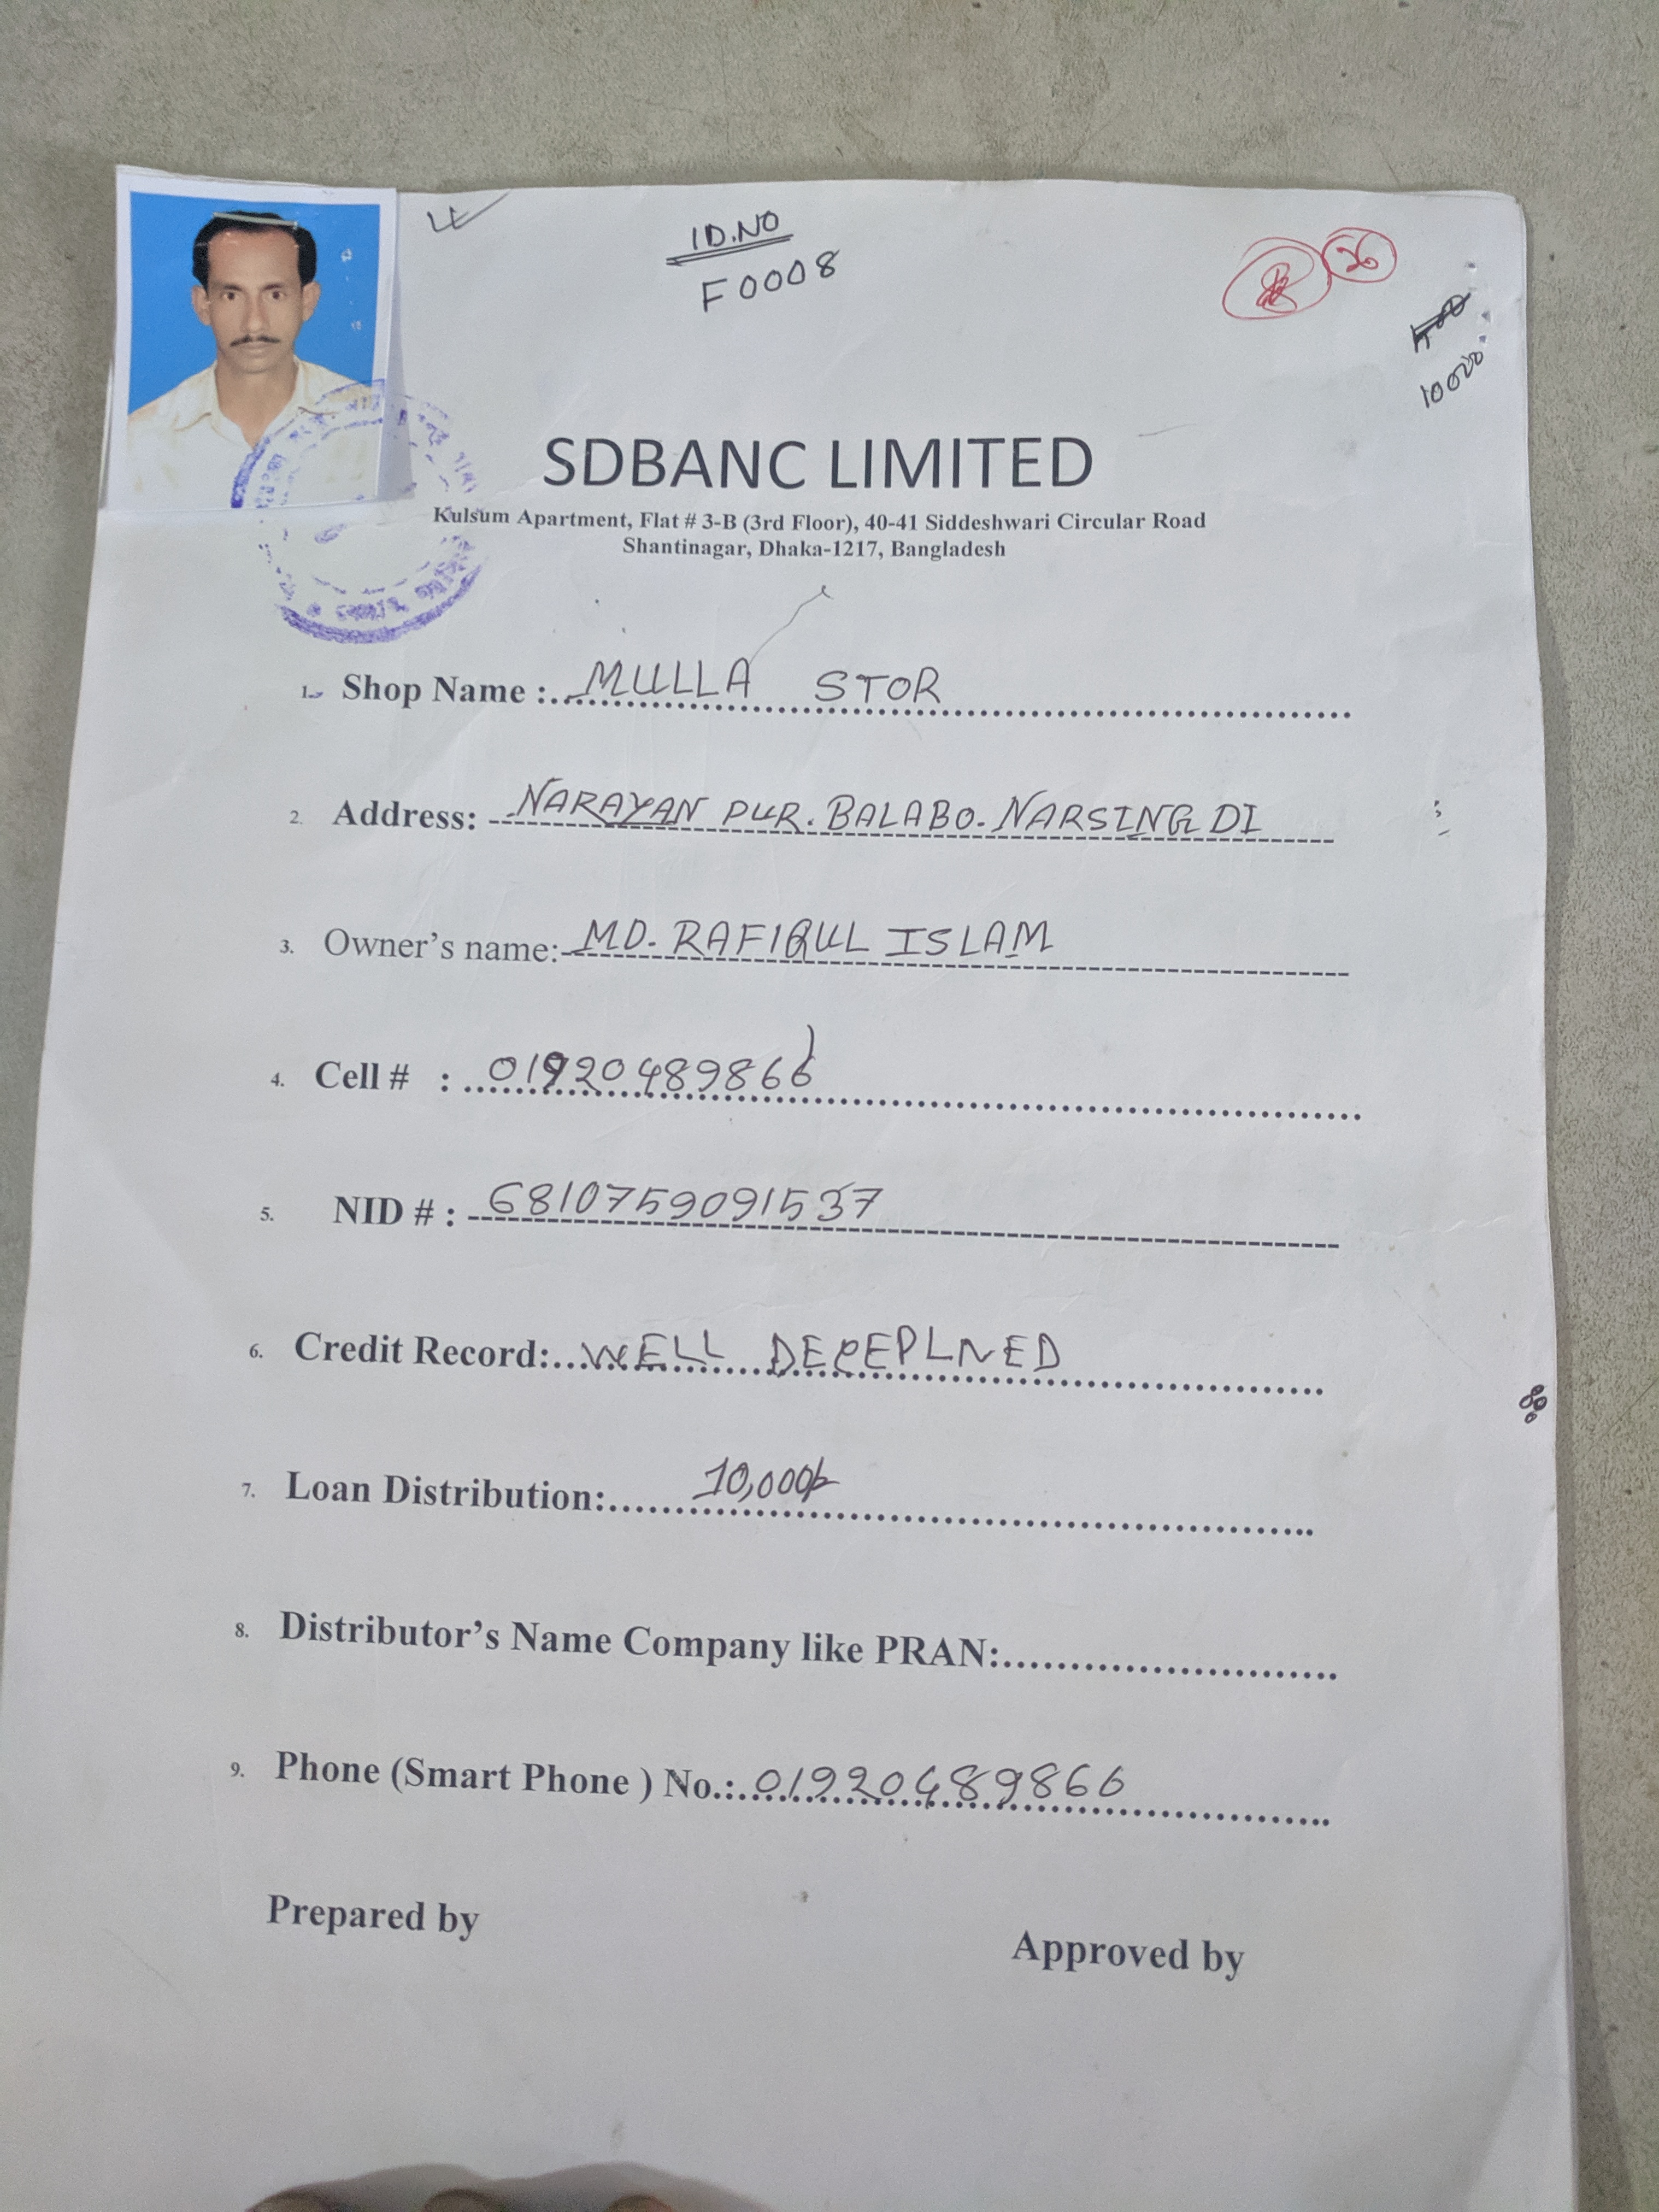 ID.NO
F0008
26
10000
SDBANC LIMITED
Kulsum Apartment, Flat # 3-B (3rd Floor), 40-41 Siddeshwari Circular Road
Shantinagar, Dhaka-1217, Bangladesh
1. Shop Name :..MULLA STOR
2. Address: NARAYAN PUR. BALABO. NARSINGDI
3. Owner's name: MD. RAFIQUL ISLAM
4. Cell # : 01920489866
5. NID # : 6810759091537
6. Credit Record:...WELL DECEPLNED
7. Loan Distribution:......10,000/-
8. Distributor's Name Company like PRAN:..........................
9. Phone (Smart Phone ) No.:..01920489866
Prepared by
Approved by